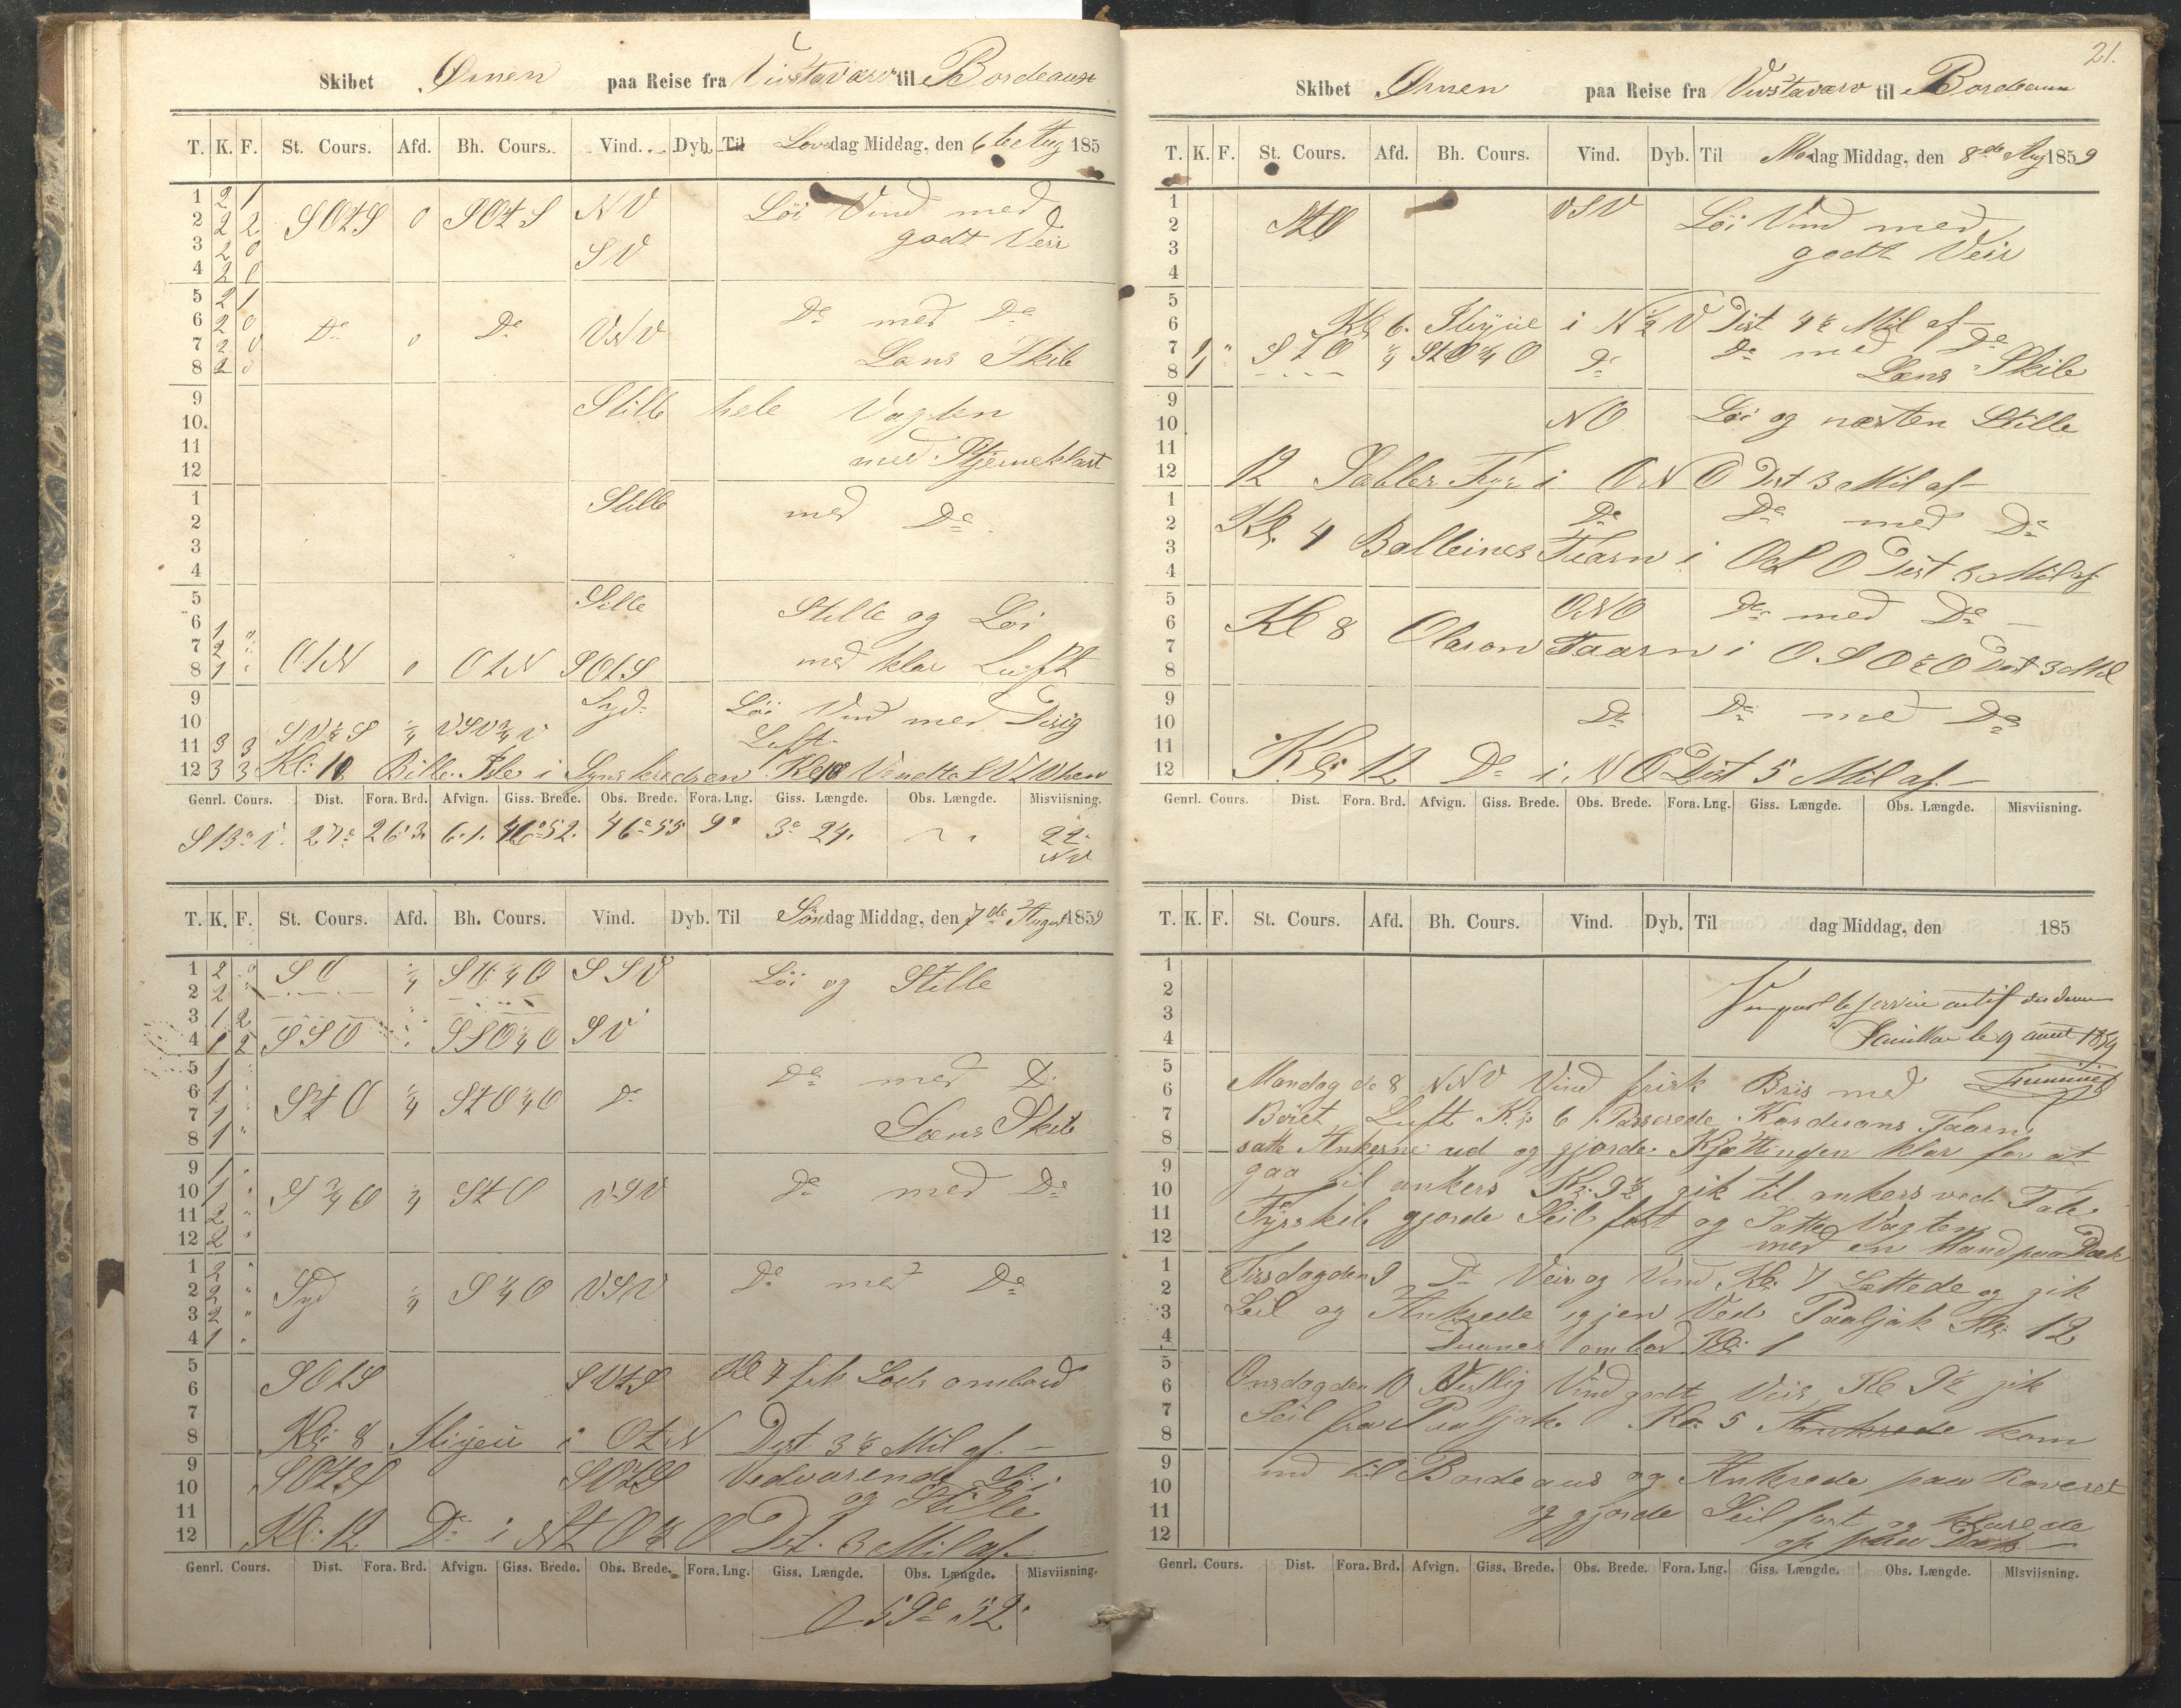 Skibet Ørnen paa Reise fra Vivstavarv til Bordeaux
T. K. F. St. Cours. Afd. Bh. Cours. Vind. Dyb. Til Løverdag Middag, den 6te Aug 185
1 2 1
2 2 2 SOtS 0 SOtS NV Löi Vind med
3 2 0 godt Veir
4 2 0 SV
5 2 1
6 2 0 Do 0 Do VNV Do med Do
7 2 0 Læns Skib
8 2 0
9 Stille hele Vagten
10.
11 med Stjerneklart
12
1 Stille med Do
2
3
4
5 Stille Stille og Löi
6 1
7 2 med klar Luft
8 1 OtN 0 OtN SOtS
9 Syd Löi Vind med Disig
10 Luft
11 3 3
12 3 3 Kl: 10 Bille Isle i Synskredsen Kl 10
Genrl. Cours. Dist. Fora. Brd. Afvign. Giss. Brede. Obs. Brede. Fora. Lng. Giss. Længde. Obs. Længde. Misviisning.
27 26.3 6.1. 46°52. 46°55 9' 3° 24. 22° NV
T. K. F. St. Cours. Afd. Bh. Cours. Vind. Dyb. Til Søndag Middag, den 7de August 1859
1 2 SO ¼ SO¼O SSV Löi og Stille
2 2
3 1 2
4 1 2 SSO SSO¼O SV
5 1 Do med Do
6 1 StO ¼ StO¼O Do
7 1 Læns Skib
8 1
9 1
10 1 S¾O ¼ StO VSV Do med Do
11 2
12 2
1 2
2 2 Syd ¼ S¼O VSV Do med Do
3 2
4 1
5 SOtS SOtS Kl 7 fik Lods ombord
6
7
8 Kl: 8 i OtN Dist 3½ Mil af.
9 SOtS SOtS Vedvarende Löi
10 og Stille
11
12 Kl: 12 Do i NtO½O Dist. 3 Mil af
Genrl. Cours. Dist. Fora. Brd. Afvign. Giss. Brede. Obs. Brede. Fora. Lng. Giss. Længde. Obs. Længde. Misviisning.
21.
Skibet Ørnen paa Reise fra Vivstavarv til Bordeaux
T. K. F. St. Cours. Afd. Bh. Cours. Vind. Dyb. Til Mandag Middag, den 8de Aug 1859
1 VSV Löi Vind med
2 StO
3 godt Veir
4
5
6 Kl: 6. i N½V Dist 4½ Mil af
7 1 StO ¼ StO¼O Do Do med Do
8 1 Læns Skib
9
10 NO Löi og næsten Stille
11
12 12 Sables Fyr i ONO Dist 3 Mil af
1 Do Do med Do
2 Kl: 4 Balleines Taarn i OSO Dist 3 Mil af
3
4
5 ONO Do med Do
6 Kl 8 Olaron Taarn i OSO½O Dist 3 Mil
7
8
9
10 Do Do med Do
11
12 Kl: 12 Do i NO Dist 5 Mil af.
Genrl. Cours. Dist. Fora. Brd. Afvign. Giss. Brede. Obs. Brede. Fora. Lng. Giss. Længde. Obs. Længde. Misviisning.
T. K. F. St. Cours. Afd. Bh. Cours. Vind. Dyb. Til dag Middag, den 185
1
2 Vu par le service
3
4 le 9 aout 1859
5
6 Mandag de 8 NNV Vind frisk Bris med
7 Böiet Luft Kl: 6 Passerede Korduans Taarn
8 satte Ankerne ud og gjorde Kjættingen klar for at
9 gaa til ankers Kl: 9½ gik til ankers ved Tale
10
11 Fyrskib gjorde Seil fast og Satte Vagten
12 med en Mand paa Dæk
1 Tirsdag den 9 Do Veir og Vind Kl: 7 Lettede og gik
2
3 Seil og Ankrede igjen Ved Paaljak Kl: 12
4 Duanes ombor Kl: 1
5
6 Onsdag den 10 Vestlig Vind godt Veir Kl 9½ gik
7 Seil fra Pauljak Kl: 5 Ankrede kom
8
9 ind til Bordeaus og Ankrede paa Raveret
10
11 og gjorde Seil fast og klarede
12 op paa Dæk
Genrl. Cours. Dist. Fora. Brd. Afvign. Giss. Brede. Obs. Brede. Fora. Lng. Giss. Længde. Obs. Længde. Misviisning.